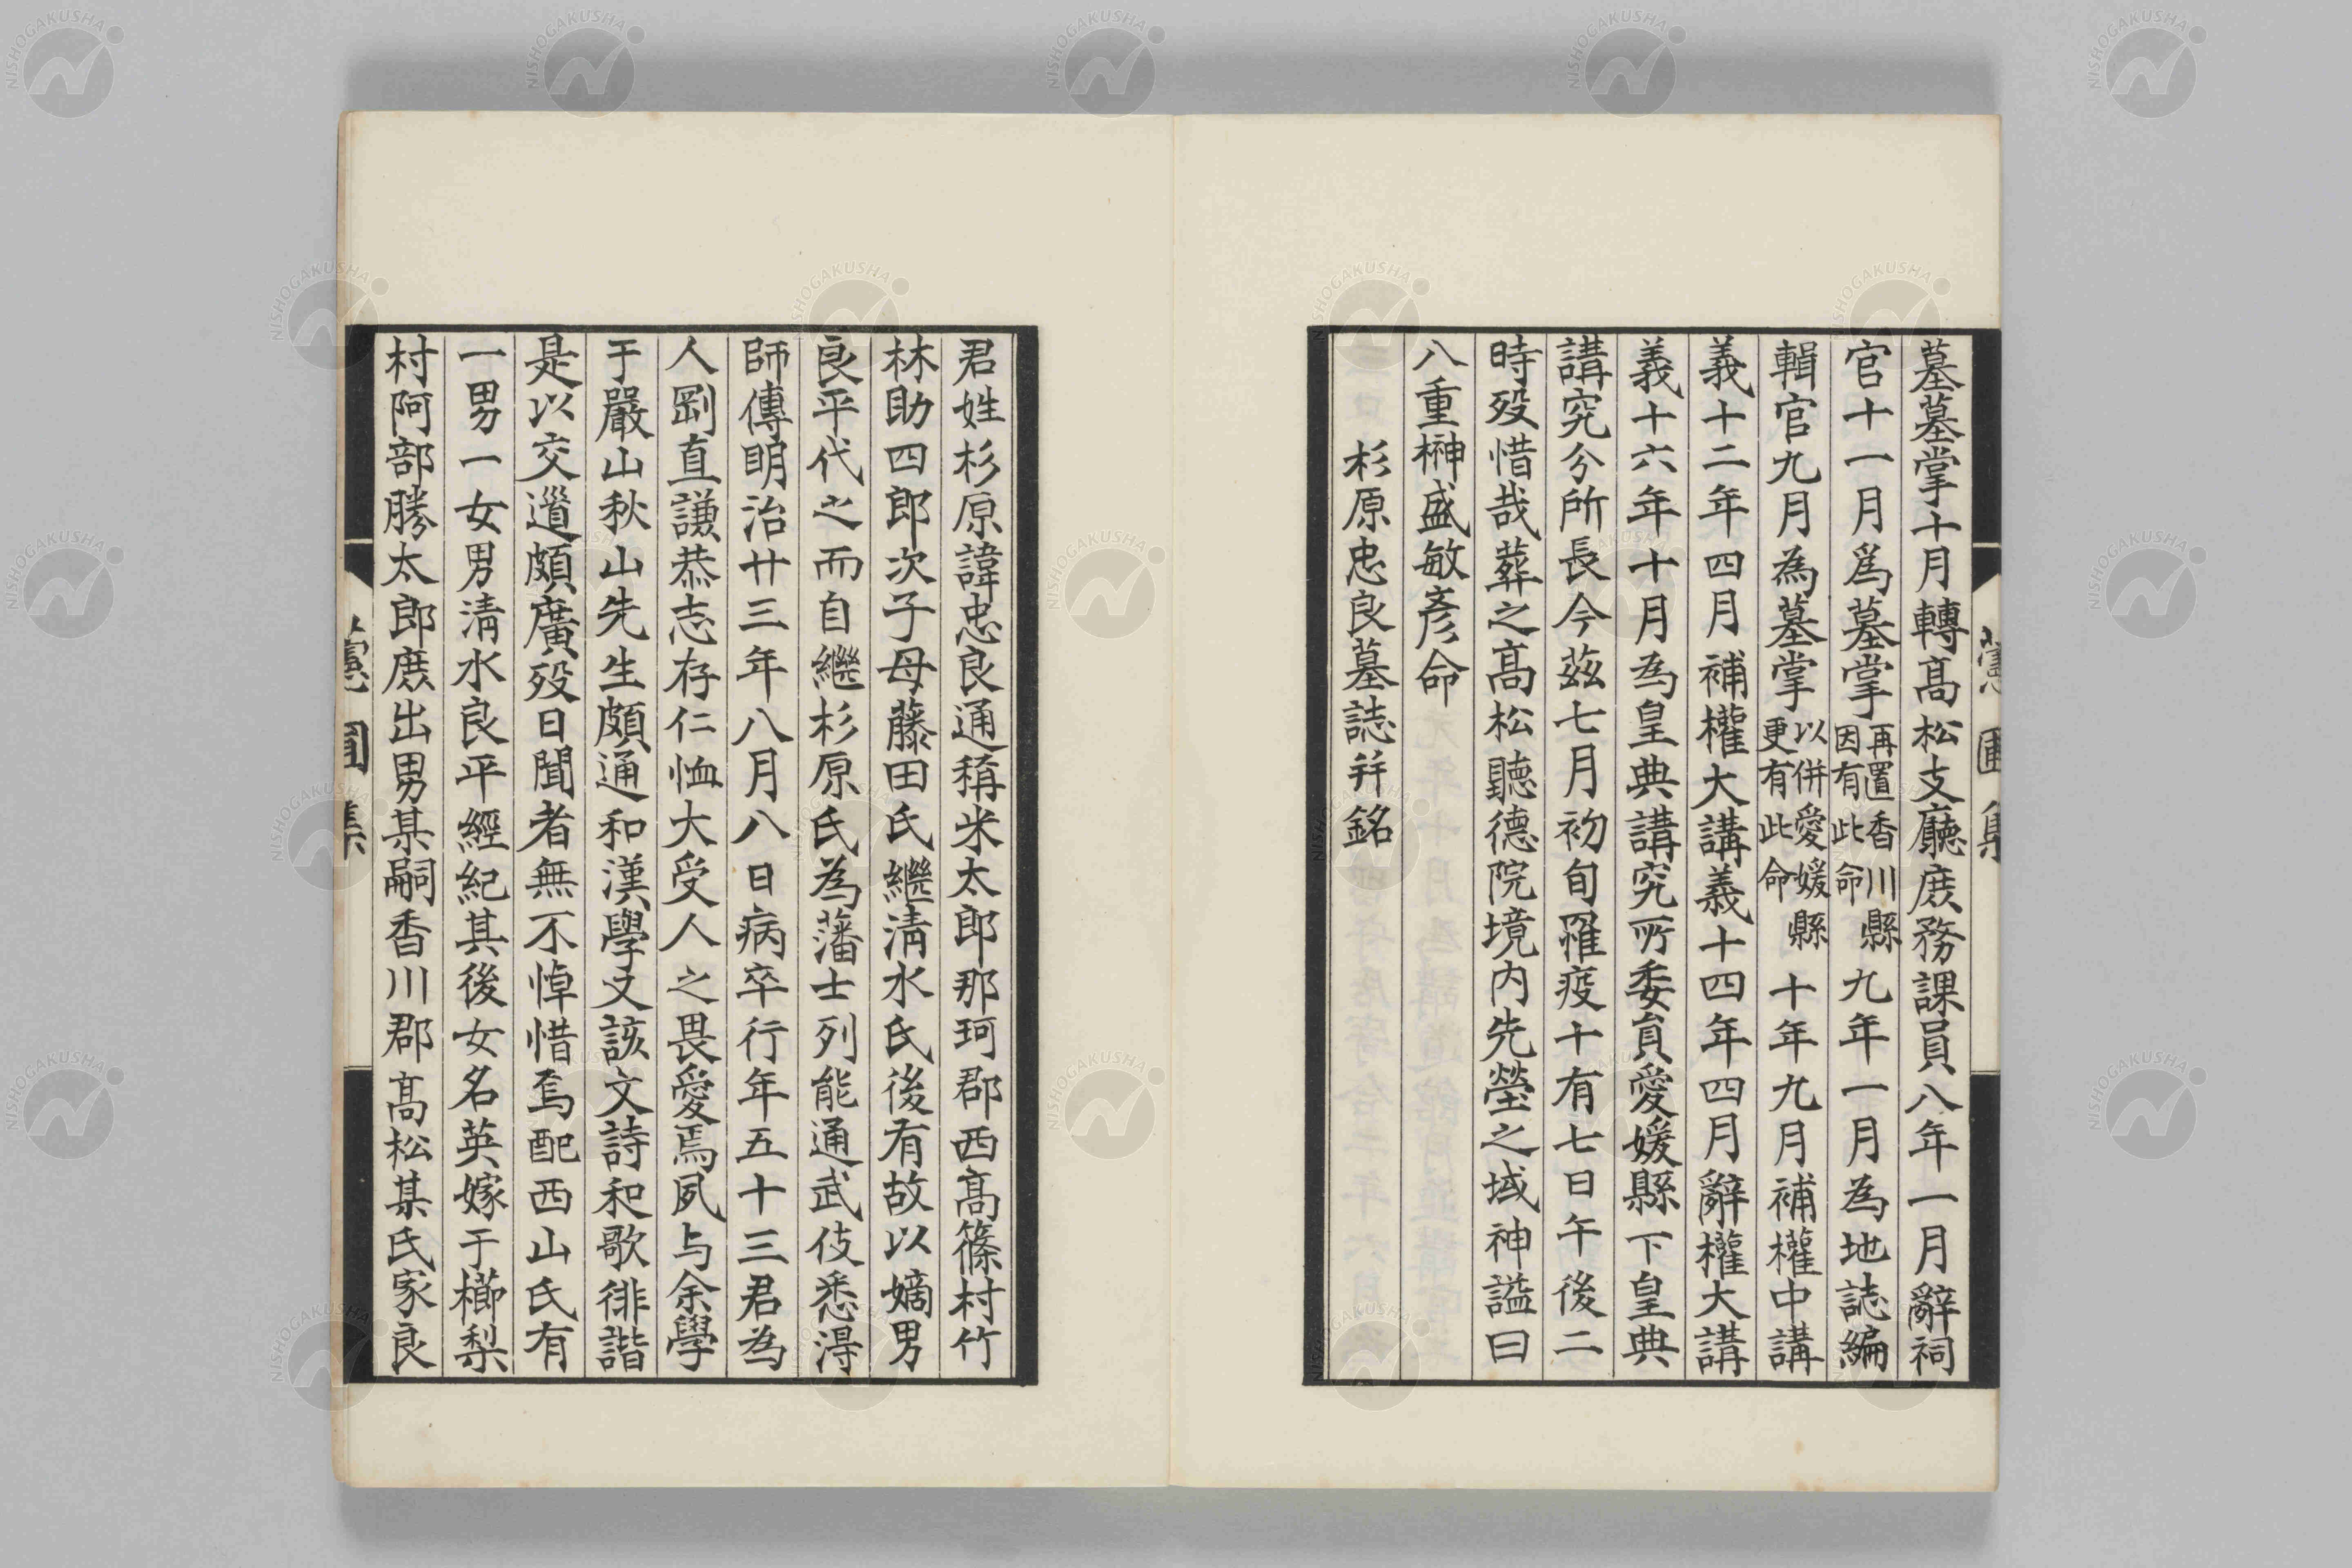 墓墓掌十月轉髙松支廳庻務課員八年一月辭祠
官十一月爲墓掌再置香川縣因有此命九年一月為地誌編
輯官九月為墓掌以併愛媛縣更有此命十年九月補權中講
義十二年四月補權大講義十四年四月辭權大講
義十六年十月為皇典講究所委員愛媛縣下皇典
講究分所長今茲七月初旬罹疫十有七日午後二
時歿惜哉葬之髙松聽德院境内先塋之域神謚曰
八重榊盛敏彥命
杉原忠良墓誌并銘
君姓杉原諱忠良通稱米太郎那珂郡西髙篠村竹
林助四郎次子母藤田氏繼淸水氏後有故以嫡男
良平代之而自繼杉原氏為藩士列能通武伎悉得
師傳明治廿三年八月八日病卒行年五十三君為
人剛直謙恭志存仁恤大受人之畏愛焉夙与余學
于嚴山秋山先生頗通和漢學又該文詩和歌徘諧
是以交道頗廣歿日聞者無不悼惜焉配西山氏有
一男一女男淸水良平經紀其後女名英嫁于櫛梨
村阿部勝太郎庻出男某嗣香川郡髙松某氏家良